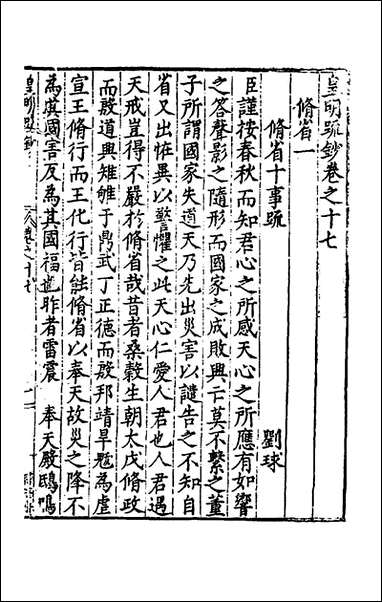 皇明疏鈔卷之十七
脩省一
脩省十事疏 劉球
臣謹按春秋而知君心之所感天心之所應有如響
之答聲影之隨形而國家之成敗興亡莫不繫之董
子所謂國家失道天乃先出災害以譴告之不知自
省又出怪異以警懼之此天心仁愛人君也人君遇
天戒豈得不嚴於脩省哉昔者桑榖生朝太戊脩政
而殷道興雉雊于鼎武丁正德而殷邦靖旱魃為虐
宣王脩行而王化行皆能脩省以奉天故災之降不
為其國害反為其國福也昨者雷震 奉天殿鴟鳴
皇明疏鈔 卷之十七 一